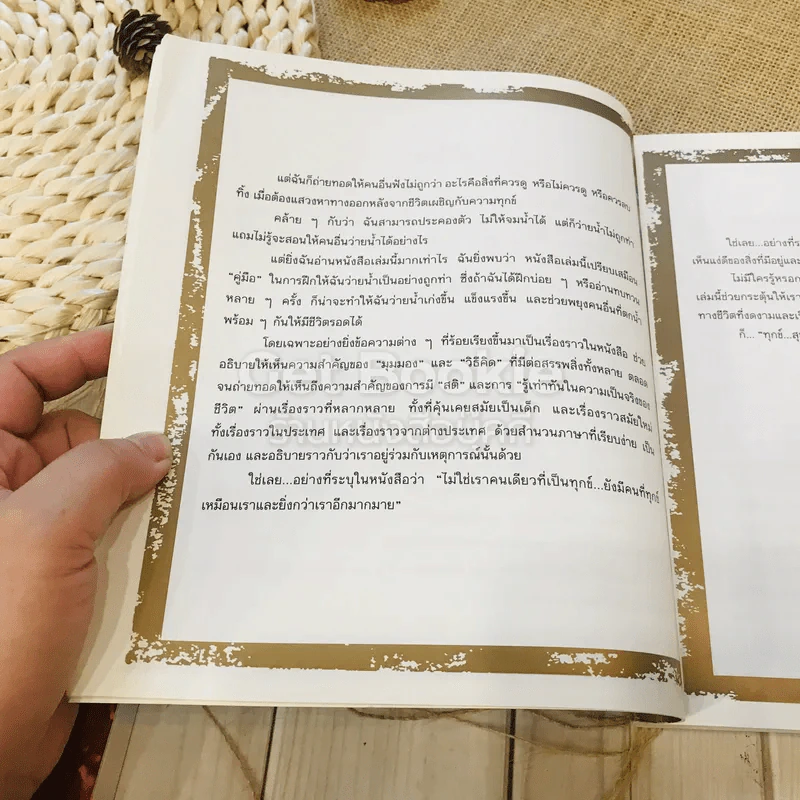 แต่ฉันก็ถ่ายทอดให้คนอื่นฟังไม่ถูกว่า อะไรคือสิ่งที่ควรดู หรือไม่ควรดู หรือควรลบ
ทิ้ง เมื่อต้องแสวงหาทางออกหลังจากชีวิตเผชิญกับความทุกข์
คล้าย ๆ กับว่า ฉันสามารถประคองตัว ไม่ให้จมน้ำได้ แต่ก็ว่ายน้ำไม่ถูกท่า
แถมไม่รู้จะสอนให้คนอื่นว่ายน้ำได้อย่างไร
แต่ยิ่งฉันอ่านหนังสือเล่มนี้มากเท่าไร ฉันยิ่งพบว่า หนังสือเล่มนี้เปรียบเสมือน
"คู่มือ" ในการฝึกให้ฉันว่ายน้ำเป็นอย่างถูกท่า ซึ่งถ้าฉันได้ฝึกบ่อย ๆ หรืออ่านทบทวน
หลาย ๆ ครั้ง ก็น่าจะทำให้ฉันว่ายน้ำเก่งขึ้น แข็งแรงขึ้น และช่วยพยุงคนอื่นที่ตกน้ำ
พร้อม ๆ กันให้มีชีวิตรอดได้
โดยเฉพาะอย่างยิ่งข้อความต่าง ๆ ที่ร้อยเรียงขึ้นมาเป็นเรื่องราวในหนังสือ ช่วย
อธิบายให้เห็นความสำคัญของ "มุมมอง" และ "วิธีคิด" ที่มีต่อสรรพสิ่งทั้งหลาย ตลอด
จนถ่ายทอดให้เห็นถึงความสำคัญของการมี "สติ" และการ "รู้เท่าทันในความเป็นจริงของ
ชีวิต" ผ่านเรื่องราวที่หลากหลาย ทั้งที่คุ้นเคยสมัยเป็นเด็ก และเรื่องราวสมัยใหม่
ทั้งเรื่องราวในประเทศ และเรื่องราวจากต่างประเทศ ด้วยสำนวนภาษาที่เรียบง่าย เป็น
กันเอง และอธิบายราวกับว่าเราอยู่ร่วมกับเหตุการณ์นั้นด้วย
ใช่เลย...อย่างที่ระบุในหนังสือว่า "ไม่ใช่เราคนเดียวที่เป็นทุกข์...ยังมีคนที่ทุกข์
เหมือนเราและยิ่งกว่าเราอีกมากมาย"
Get Bookie
ร้านหนังสือบุ๊คกี้
ใช่เลย...อย่างที่
เห็นแง่ดีของสิ่งที่มีอยู่และ
ไม่มีใครรู้หรอก
เล่มนี้ช่วยกระตุ้นให้เรา
ทางชีวิตที่งดงามและ
ก็... "ทุกข์...